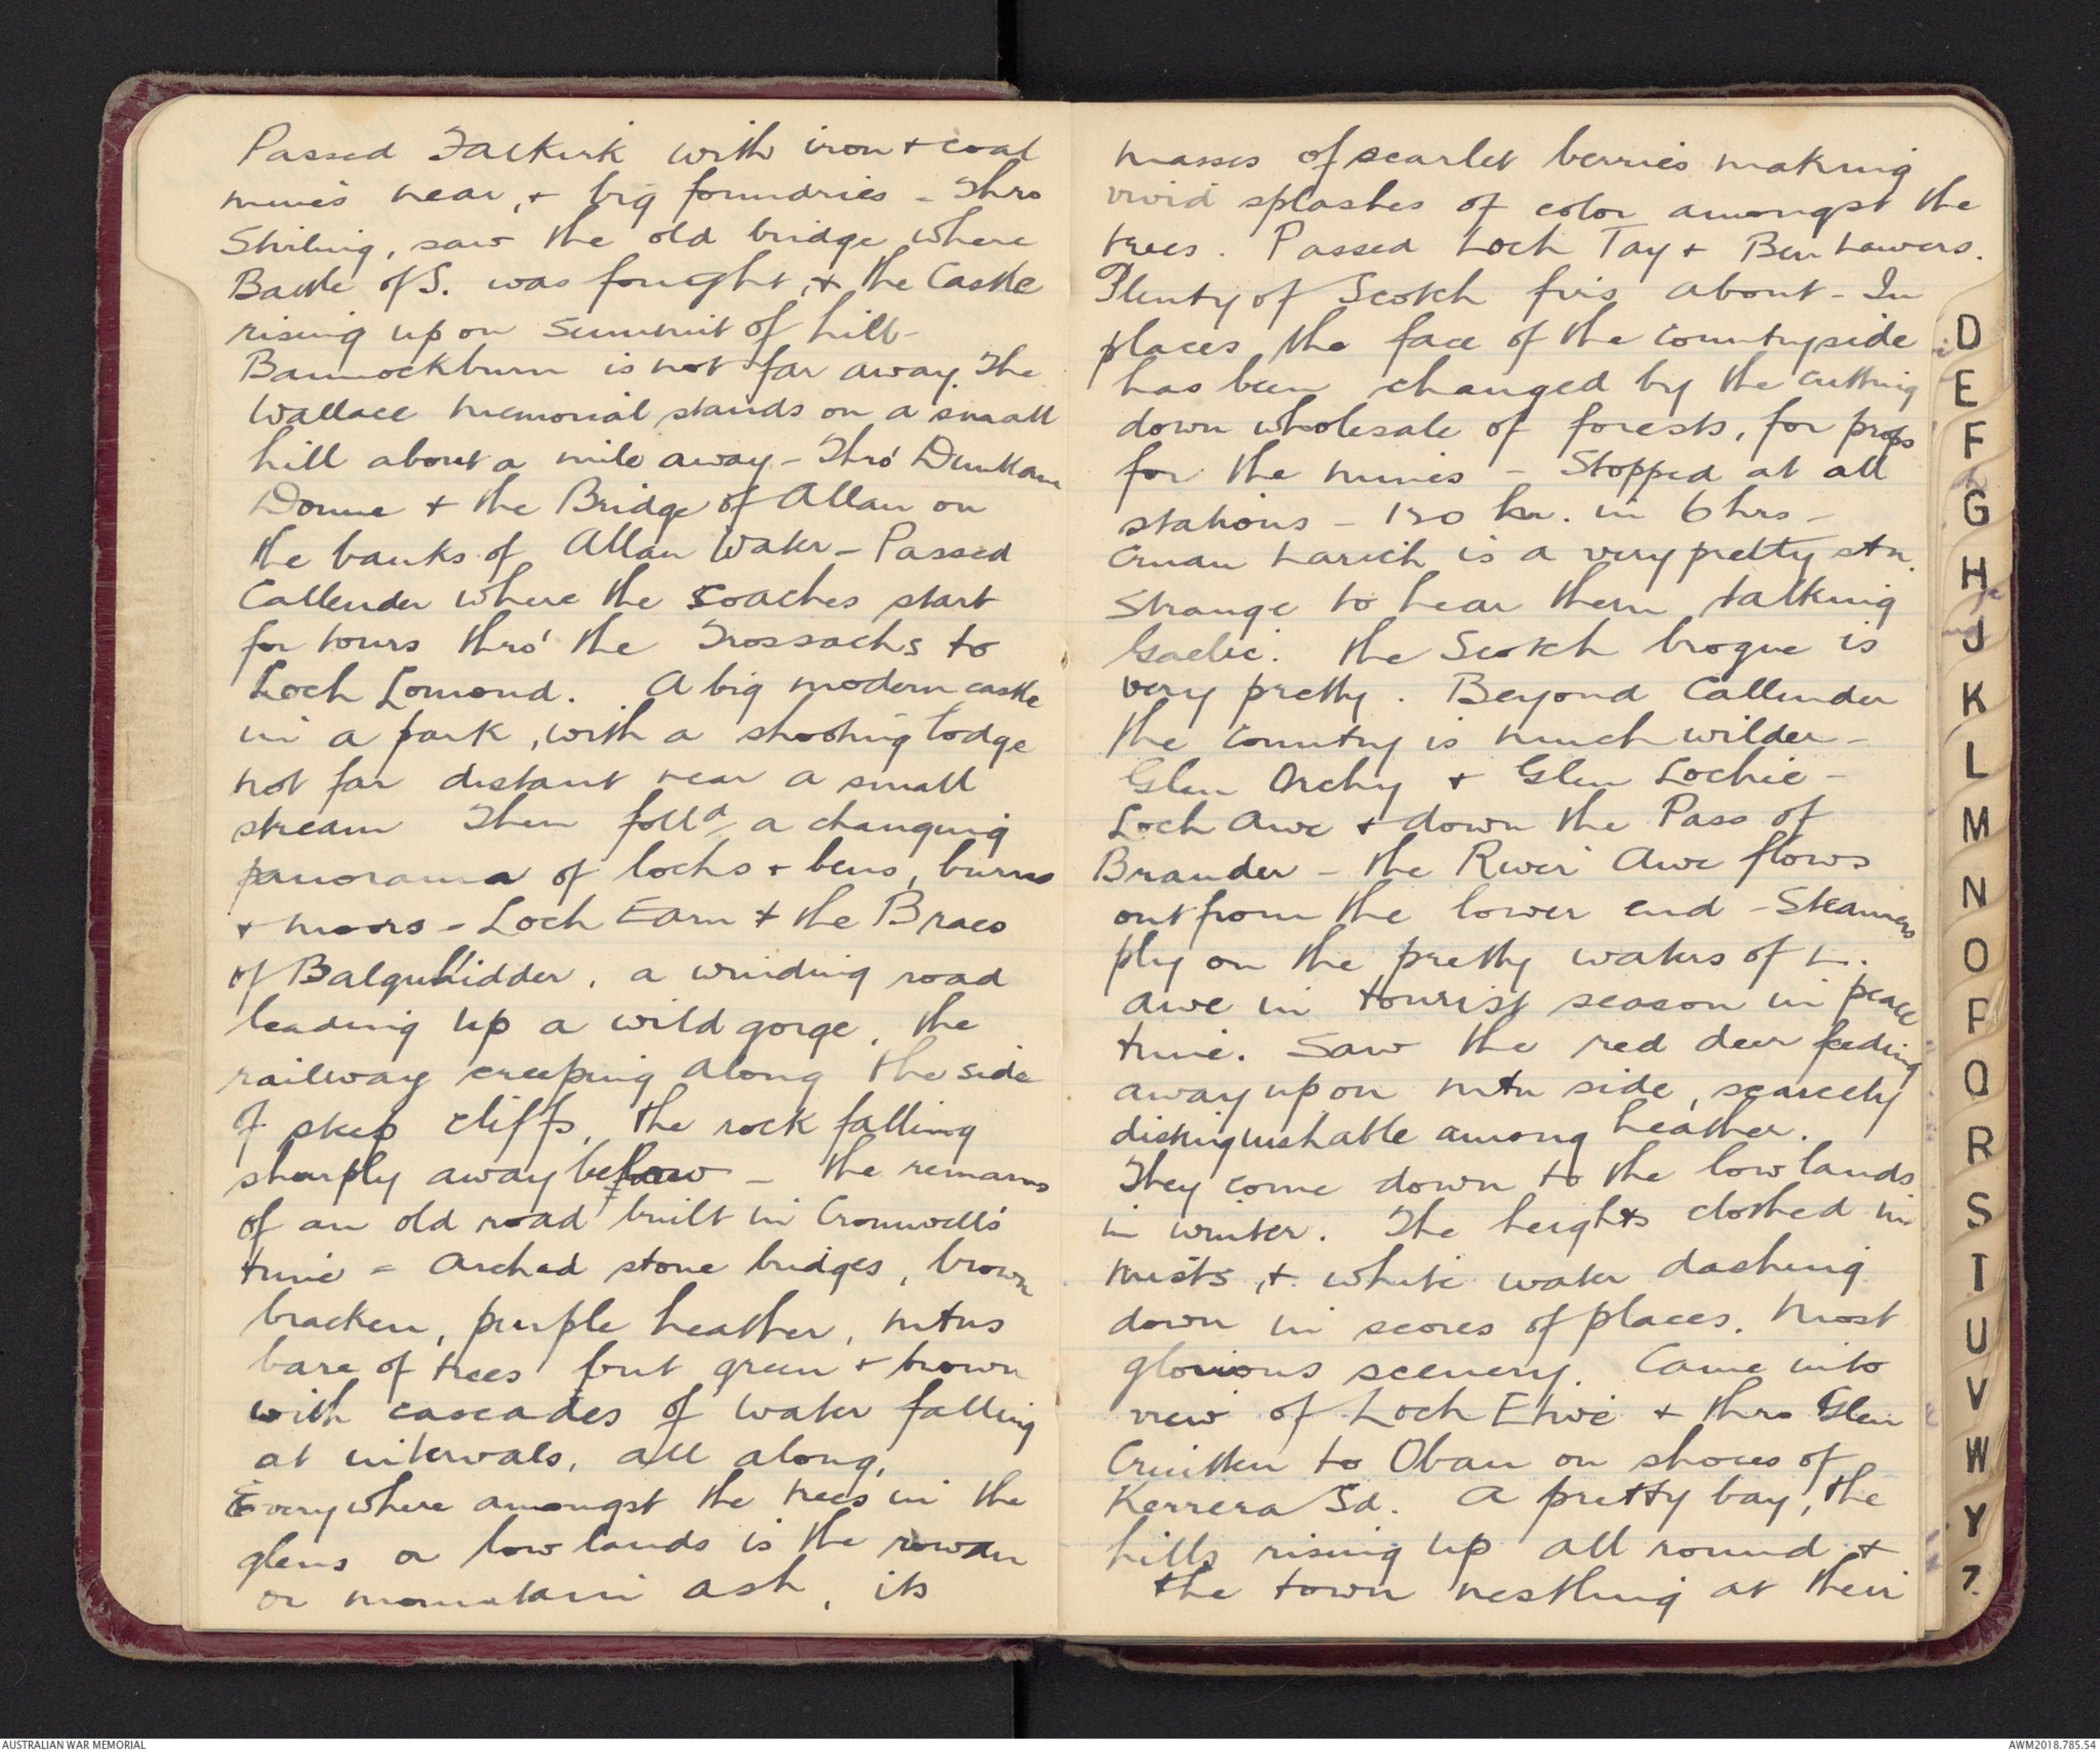 Passed Falkirk with iron + coal
mines near, + big foundries - Thro
Stirling, saw the old bridge where
Battle of S. was fought, + the Castle
rising up on summit of hill -
Bannockburn is not far away. The
Wallace memorial stands on a small
hill about a mile away - Thro' Dunblane
Doune + the Bridge of Allan on
the banks of Allan Water - Passed
Callender where the coaches start
for tours thro' the Trossachs to
Loch Lomond. A big modern castle
in a park, with a shooting lodge
not far distant near a small
stream Then folld a changing
panorama of lochs + bens, burns
+ moors - Loch Earn + the Braes
of Balquhidder, a winding road
leading up a wild gorge, the
railway creeping along the side
of steep cliffs, the rock falling
sharply away below - the remains
of an old road built in Cromwell's
time - Arched stone bridges, brown
bracken, purple heather, mtns
bare of trees but green + brown
with cascades of water falling
at intervals, all along.
Everywhere amongst the trees in the
glens or low lands is the rowan
or mountain ash, its
masses of scarlet berries making
vivid splashes of color amongst the
trees. Passed Loch Tay + Ben Lawers.
Plenty of Scotch firs about - In
places the face of the countryside
has been changed by the cutting
down wholesale of forests, for props
for the mines - Stopped at all
stations - 120 km. in 6 hrs -
Crian Larich is a very pretty stn.
Strange to hear them talking
Gaelic. The Scotch brogue is
very pretty. Beyond Callender
the country is much wilder -
Glen Orchy + Glen Lochie -
Loch Awe + down the Pass of
Brander - the River Awe flows
out from the lower end - Steamers
ply on the pretty waters of L.
Awe in tourist season in peace
time. Saw the red deer feeding
away up on mtn side, scarcely
distinguishable among heather.
They come down to the low lands
in winter. The heights clothed in
mists, + white water dashing
down in scores of places. Most
glorious scenery. Came into
view of Loch Etive + thro Glen
Cruitten to Oban on shores of
Kerrera Sd. A pretty bay, the
hills rising up all round +
the town nestling at their
D
E
F
G
H
J
K
L
M
N
O
P
Q
R
S
T
U
V
W
Y
?
AUSTRALIAN WAR MEMORIAL
AWM2018.785.54